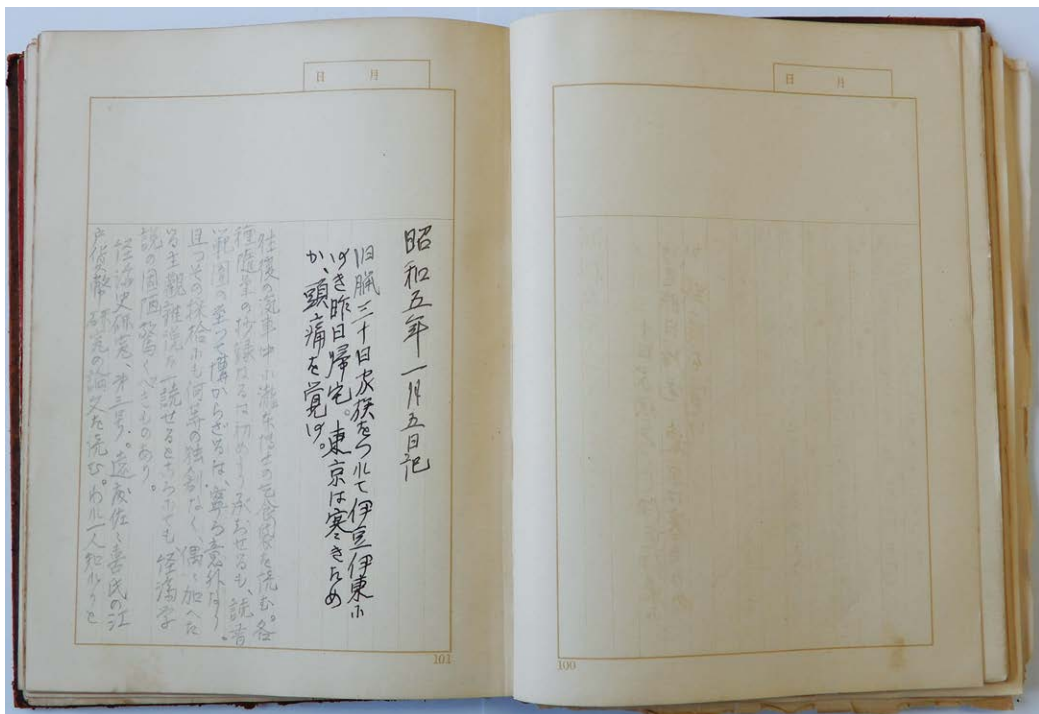 日 月
100
日 月
昭和五年一月五日記
旧臘三十日家族をつれて伊豆伊東に
ゆき昨日帰宅。東京は寒きため
か、頭痛を覚ゆ。
往復の汽車中に瀧本博士の乞食袋を読む。各
種随筆の抄録なるは初めより承知せるも、読書
範囲の至つて博からざるは、寧ろ意外なり
且つその採拾にも何等の独創なく、偶々加へた
る主観雑説を一読せるところにても経済学
説の固陋驚くべきものあり。
経済史研究、第三号。遠藤佐々喜氏の江
戸貨幣研究の論文を読む。われ一人知れりと
101